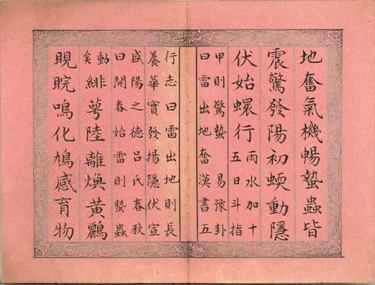 地奮氣機暢蟄蟲皆
震驚發陽初蝡動隱
伏始蠉行雨水加十
五日斗指
甲則驚蟄易豫卦
曰雷出地奮漢書五
行志曰雷出地則長
養華實發揚隱伏宣
盛陽之德呂氏春秋
曰開春始雷則蟄蟲
動矣緋萼陸離煥黃鸝
睍睆鳴化鳩感育物